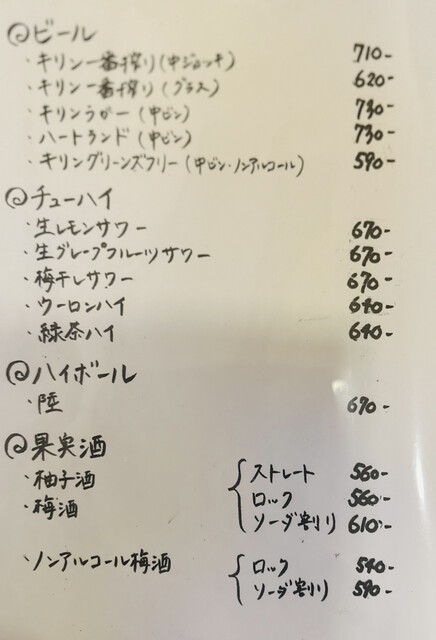 ◎ビール
・キリン一番搾り(中ジョッキ) 710-
・キリン一番搾り(グラス) 620-
・キリンラガー(中ビン) 730-
・ハートランド(中ビン) 730-
・キリングリーンズフリー(中ビン・ノンアルコール) 590-
◎チューハイ
・生レモンサワー 670-
・生グレープフルーツサワー 670-
・梅干しサワー 670-
・ウーロンハイ 640-
・緑茶ハイ 640-
◎ハイボール
・陸 670-
◎果実酒
・柚子酒 ストレート 560-
・梅酒 ロック 560-
ソーダ割り 610-
・ノンアルコール梅酒 ロック 540-
ソーダ割り 590-